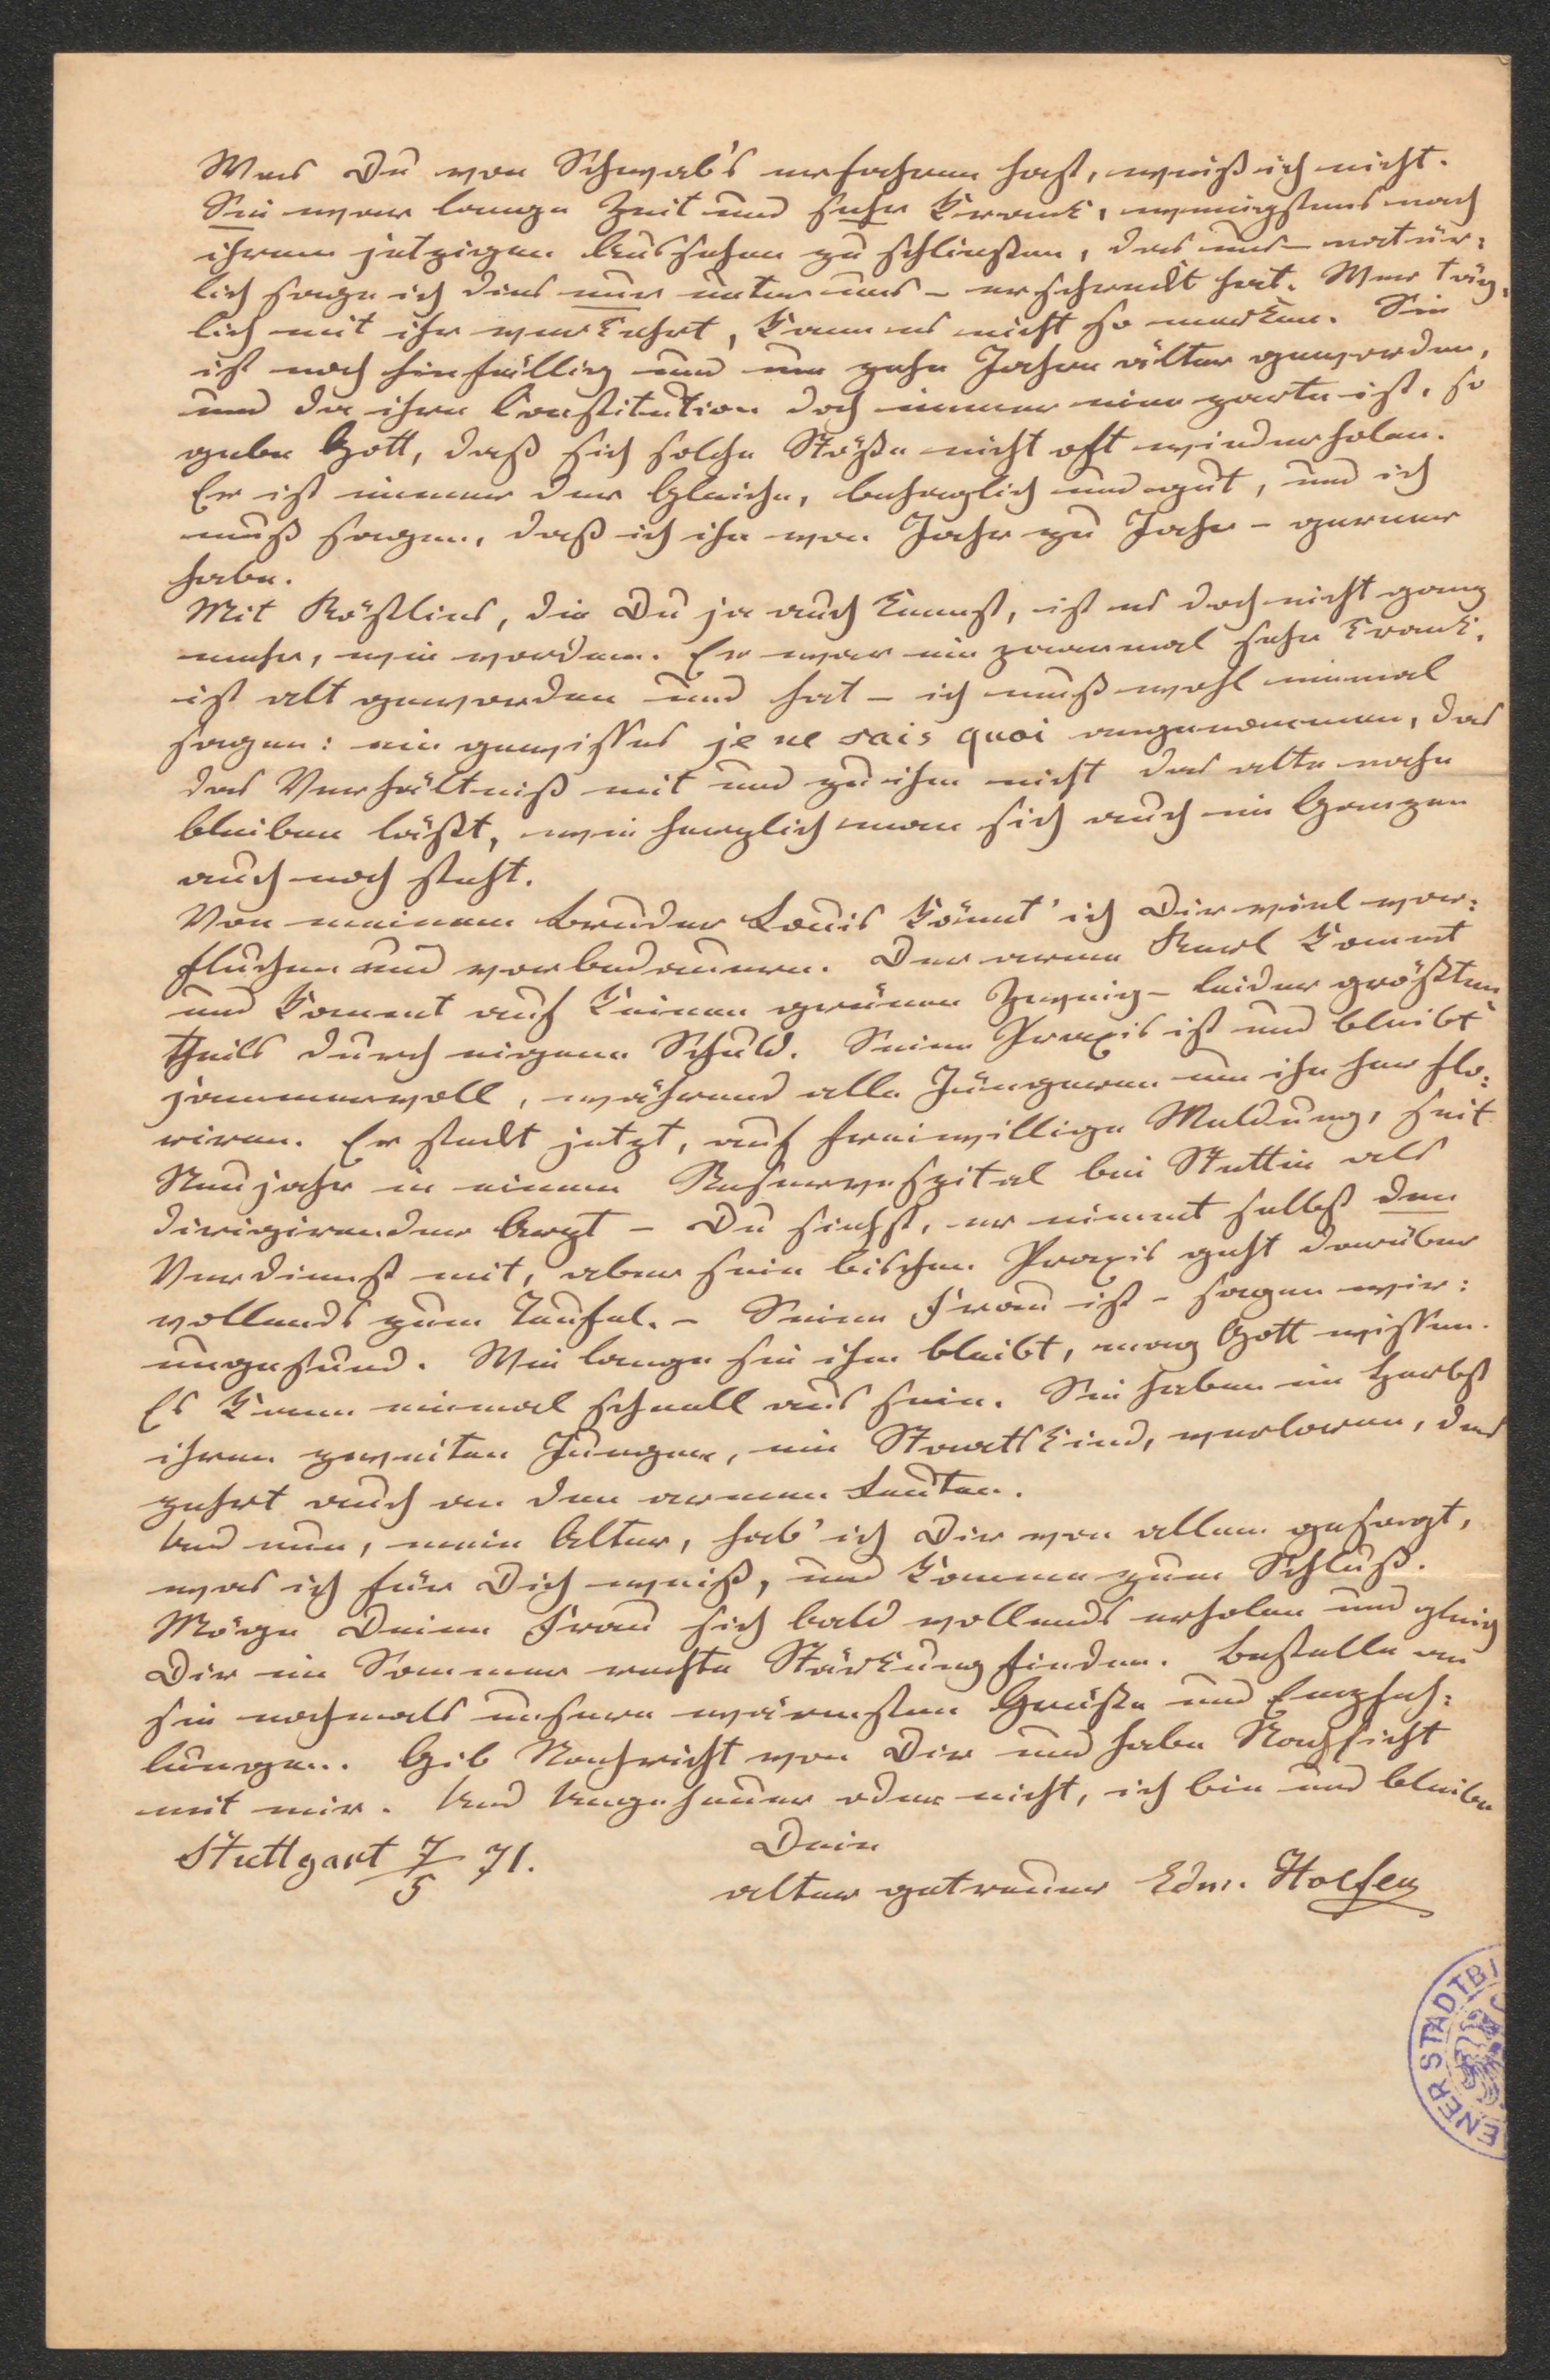 Was Du von Schwab's erfahren hast, weiß ich nicht.
Sie war lange Zeit und sehr krank, wenigstens nach
ihrem jetzigen Aussehen zu schließen, das uns – natür:
lich sage ich dies nur unter uns – erschreckt hat. Wer täg:
lich mit ihr verkehrt, kann es nicht so merken. Sie
ist noch hinfällig und um zehn Jahre älter geworden,
und da ihre Constitution doch immer eine zarte ist, so
gebe Gott, daß sich solche Stöße nicht oft wiederholen.
Er ist immer der Gleiche, behaglich und gut, und ich
muß sagen, daß ich ihn von Jahr zu Jahr – gerner
habe.
Mit Köstlins, die Du ja auch kennst, ist es doch nicht ganz
mehr, wie vordem. Er war ein paarmal sehr krank,
ist alt geworden und hat – ich muß wohl einmal
sagen: ein gewisses je ne sais quoi angenommen, das
das Verhältniß mit und zu ihm nicht das alte nahe
bleiben läßt, wie herzlich man sich auch im Ganzen
auch noch steht.
Von meinem Bruder Louis könnt' ich Dir viel vor:
fluchen und vorbedauern. Der arme Kerl kommt
und kommt auf keinen grünen Zweig – leider größten
theils durch eigene Schuld. Seine Praxis ist und bleibt
jammervoll, während alle Jüngeren um ihn her flo:
riren. Er steckt jetzt, auf freiwillige Meldung, seit
Neujahr in einem Reservespital bei Stettin als
dirigirender Arzt – Du siehst, er nimmt selbst den
Verdienst mit, aber sein bischen Praxis geht darüber
vollends zum Teufel. – Seine Frau ist – sagen wir:
ungesund. Wie lange sie ihm bleibt, mag Gott wissen.
Es kann einmal schnell aus sein. Sie haben im Herbst
ihren zweiten Jungen, ein Staatskind, verloren, das
zehrt auch an den armen Leuten.
Und nun, mein Alter, hab' ich Dir von allem gesagt,
was ich für Dich weiß, und komme zum Schluß.
Möge Deine Frau sich bald vollends erholen und gleich
Dir im Sommer rechte Stärkung finden. Bestelle an
sie nochmals unsere wärmsten Grüße und Empfeh:
lungen. Gib Nachricht von Dir und habe Nachsicht
mit mir. Und Ungeheuer oder nicht, ich bin und bleibe
Dein
Stuttgart 7/5 71.
alter getreuer Edm. Hoefer
ENER STADTBI